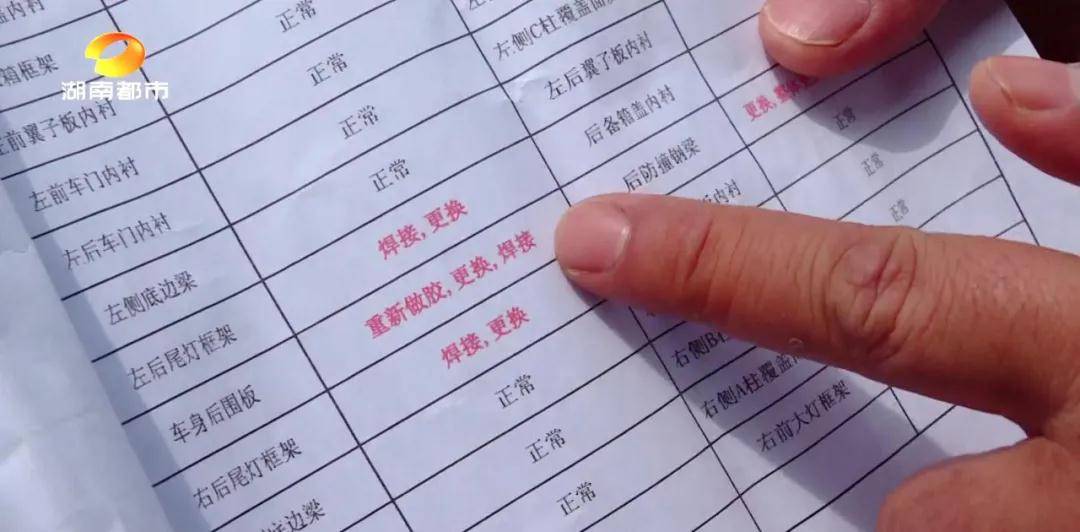 盖内衬
箱框架
左前翼子板内衬 正常
左前车门内衬 正常
左后车门内衬 正常 左侧C柱覆盖面
左侧底边梁 正常 左后翼子板内衬
左后尾灯框架 焊接,更换 后备箱盖内衬 更换,
车身后围板 重新做胶,更换,焊接 后防撞钢梁 正常
右后尾灯框架 焊接,更换 板内衬 正常
侧底边梁 正常 正常
正常 右侧B
正常 右侧A柱覆盖
右前大灯框架
湖南都市